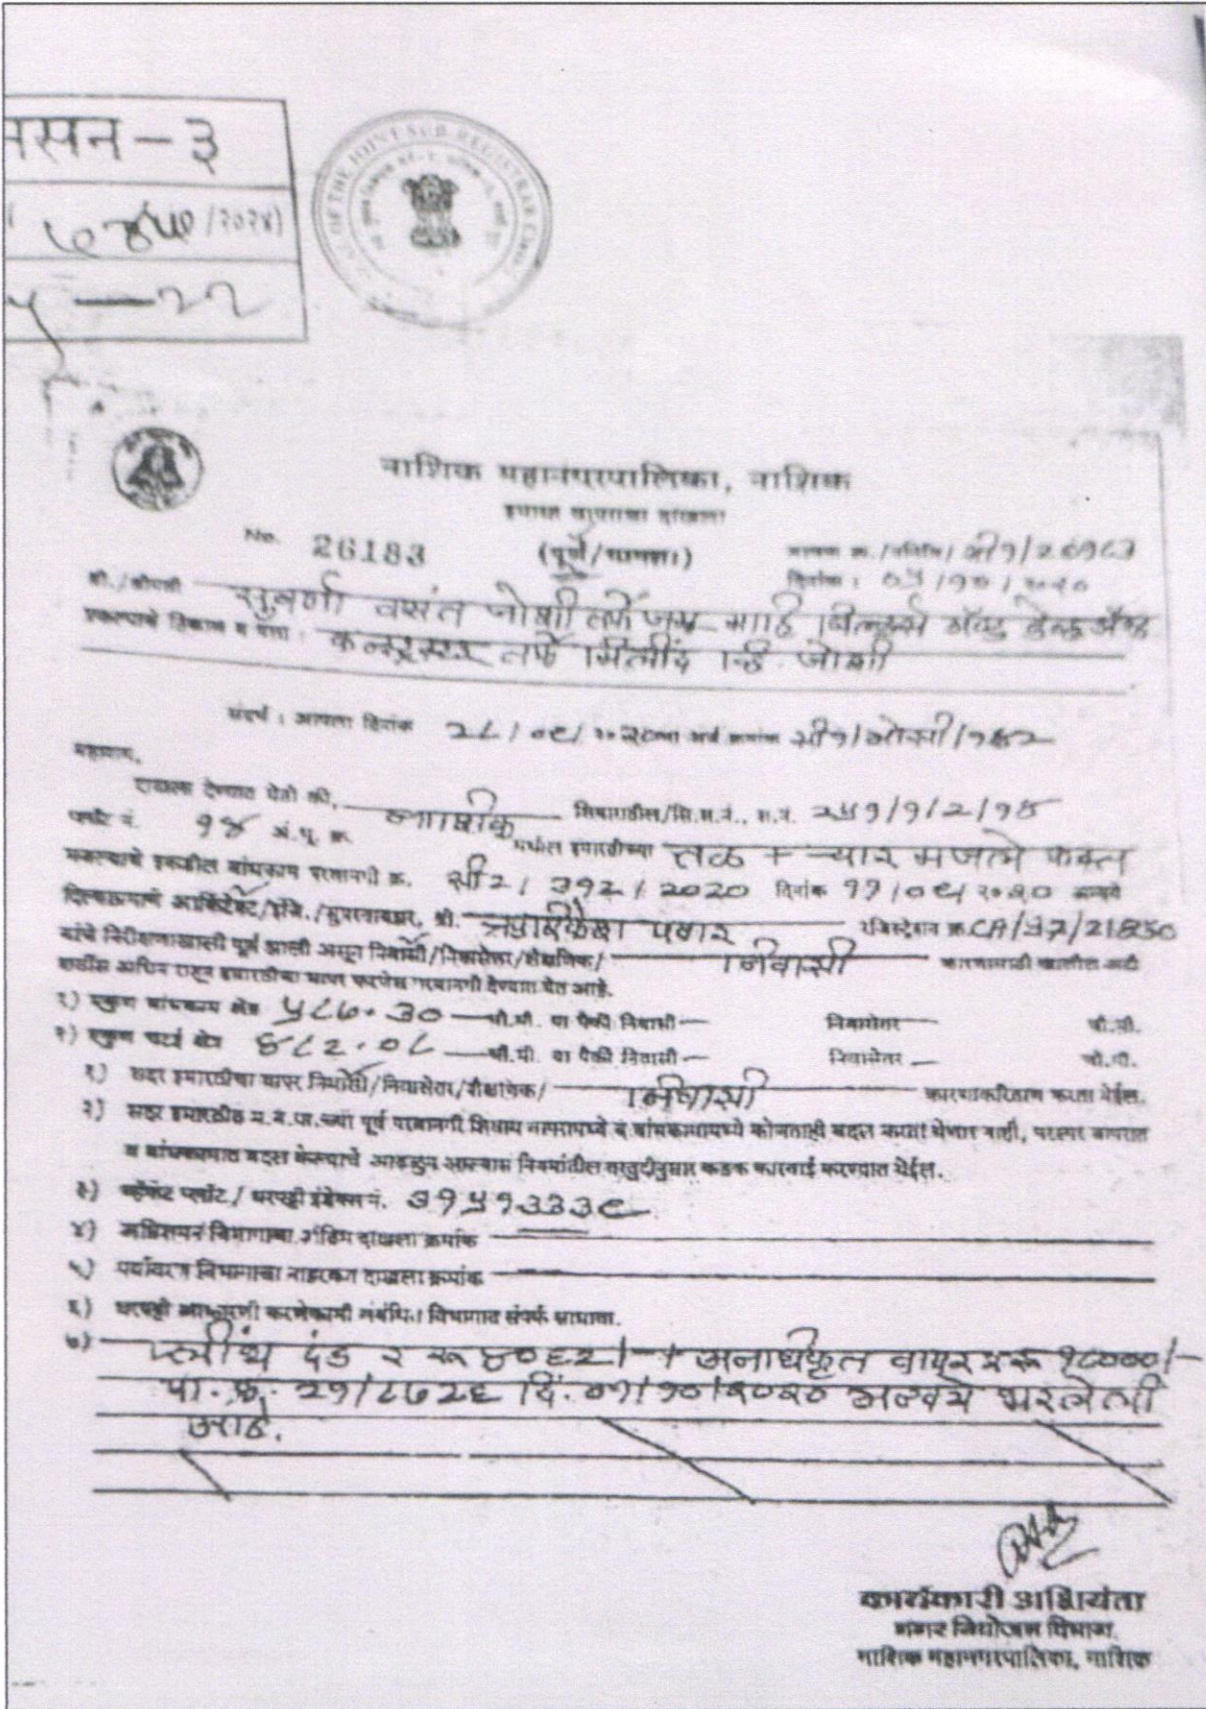 नसन - ३
/२०२४)
५ — २२
SEAL OF THE JOINT SUB REGISTRAR
नाशिक महानगरपालिका, नाशिक
इमारत वापराचा दाखला
No. 26183 (पूर्ण/भागशः) जावक क्र./नरवि/
दिनांक : ०५/१०/२०२०
श्री./श्रीमती सुवर्णा वसंत जोशी तर्फे
तर्फे मिलींद व्हि. जोशी
संदर्भ : आपला दिनांक २८/०९/२०२०चा अर्ज क्रमांक सी१/
महाशय,
दाखला देण्यात येतो की, नाशिक शिवारातील/सि.स.नं., स.नं. २५१/१/2/१४
प्लॉट नं. १४ अं.भू. क्र. मधील इमारतीच्या तळ + चार मजले फक्त
मजल्याचे इकडील बांधकाम परवानगी क्र. सी2/ 392/ 2020 दिनांक ११/०९/२०२० अन्वये
दिल्याप्रमाणे आर्किटेक्ट/इंजि./सुपरवायझर, श्री. पवार रजिस्ट्रेशन क्र. CA/97/21850
यांचे निरीक्षणाखाली पूर्ण झाली असून निवासी/निवासेतर/शैक्षणिक/ निवासी कारणासाठी खालील अटी
शर्तीस अधिन राहून इमारतीचा वापर करणेस परवानगी देण्यात येत आहे.
१) एकुण बांधकाम क्षेत्र ५८७.३० चौ.मी. पा पैकी निवासी — निवासेतर — चौ.मी.
२) एकुण चटई क्षेत्र ४८२.०८ चौ.मी. पा पैकी निवासी — निवासेतर — चौ.मी.
१) सदर इमारतीचा वापर निवासी/निवासेतर/शैक्षणिक/ निवासी कारणाकरिताच करता येईल.
२) सदर इमारतीत म.न.पा.च्या पूर्व परवानगी शिवाय वापरामध्ये व बांधकामामध्ये कोणताही बदल करता येणार नाही, परस्पर वापरात
व बांधकामात बदल केल्याचे आढळुन आल्यास नियमांतील तरतुदीनुसार कडक कारवाई करण्यात येईल.
३) व्हेकंट प्लॉट / घरपट्टी इंडेक्स नं. 3१५१333९
४) अग्निशमन विभागाचा अंतिम दाखला क्रमांक
५) पर्यावरण विभागाचा नाहरकत दाखला क्रमांक
६) घरपट्टी आकारणी करणेकामी संबंधित विभागात संपर्क साधावा.
७) दंड र रू ४०६२/- + अनाधिकृत वापर र रू १८०००/-
पा. क्र. 21/८७२६ दि. ०१/१०/२०२० अन्वये भरलेली
आहे.
कार्यकारी अभियंता
नगर नियोजन विभाग
नाशिक महानगरपालिका, नाशिक